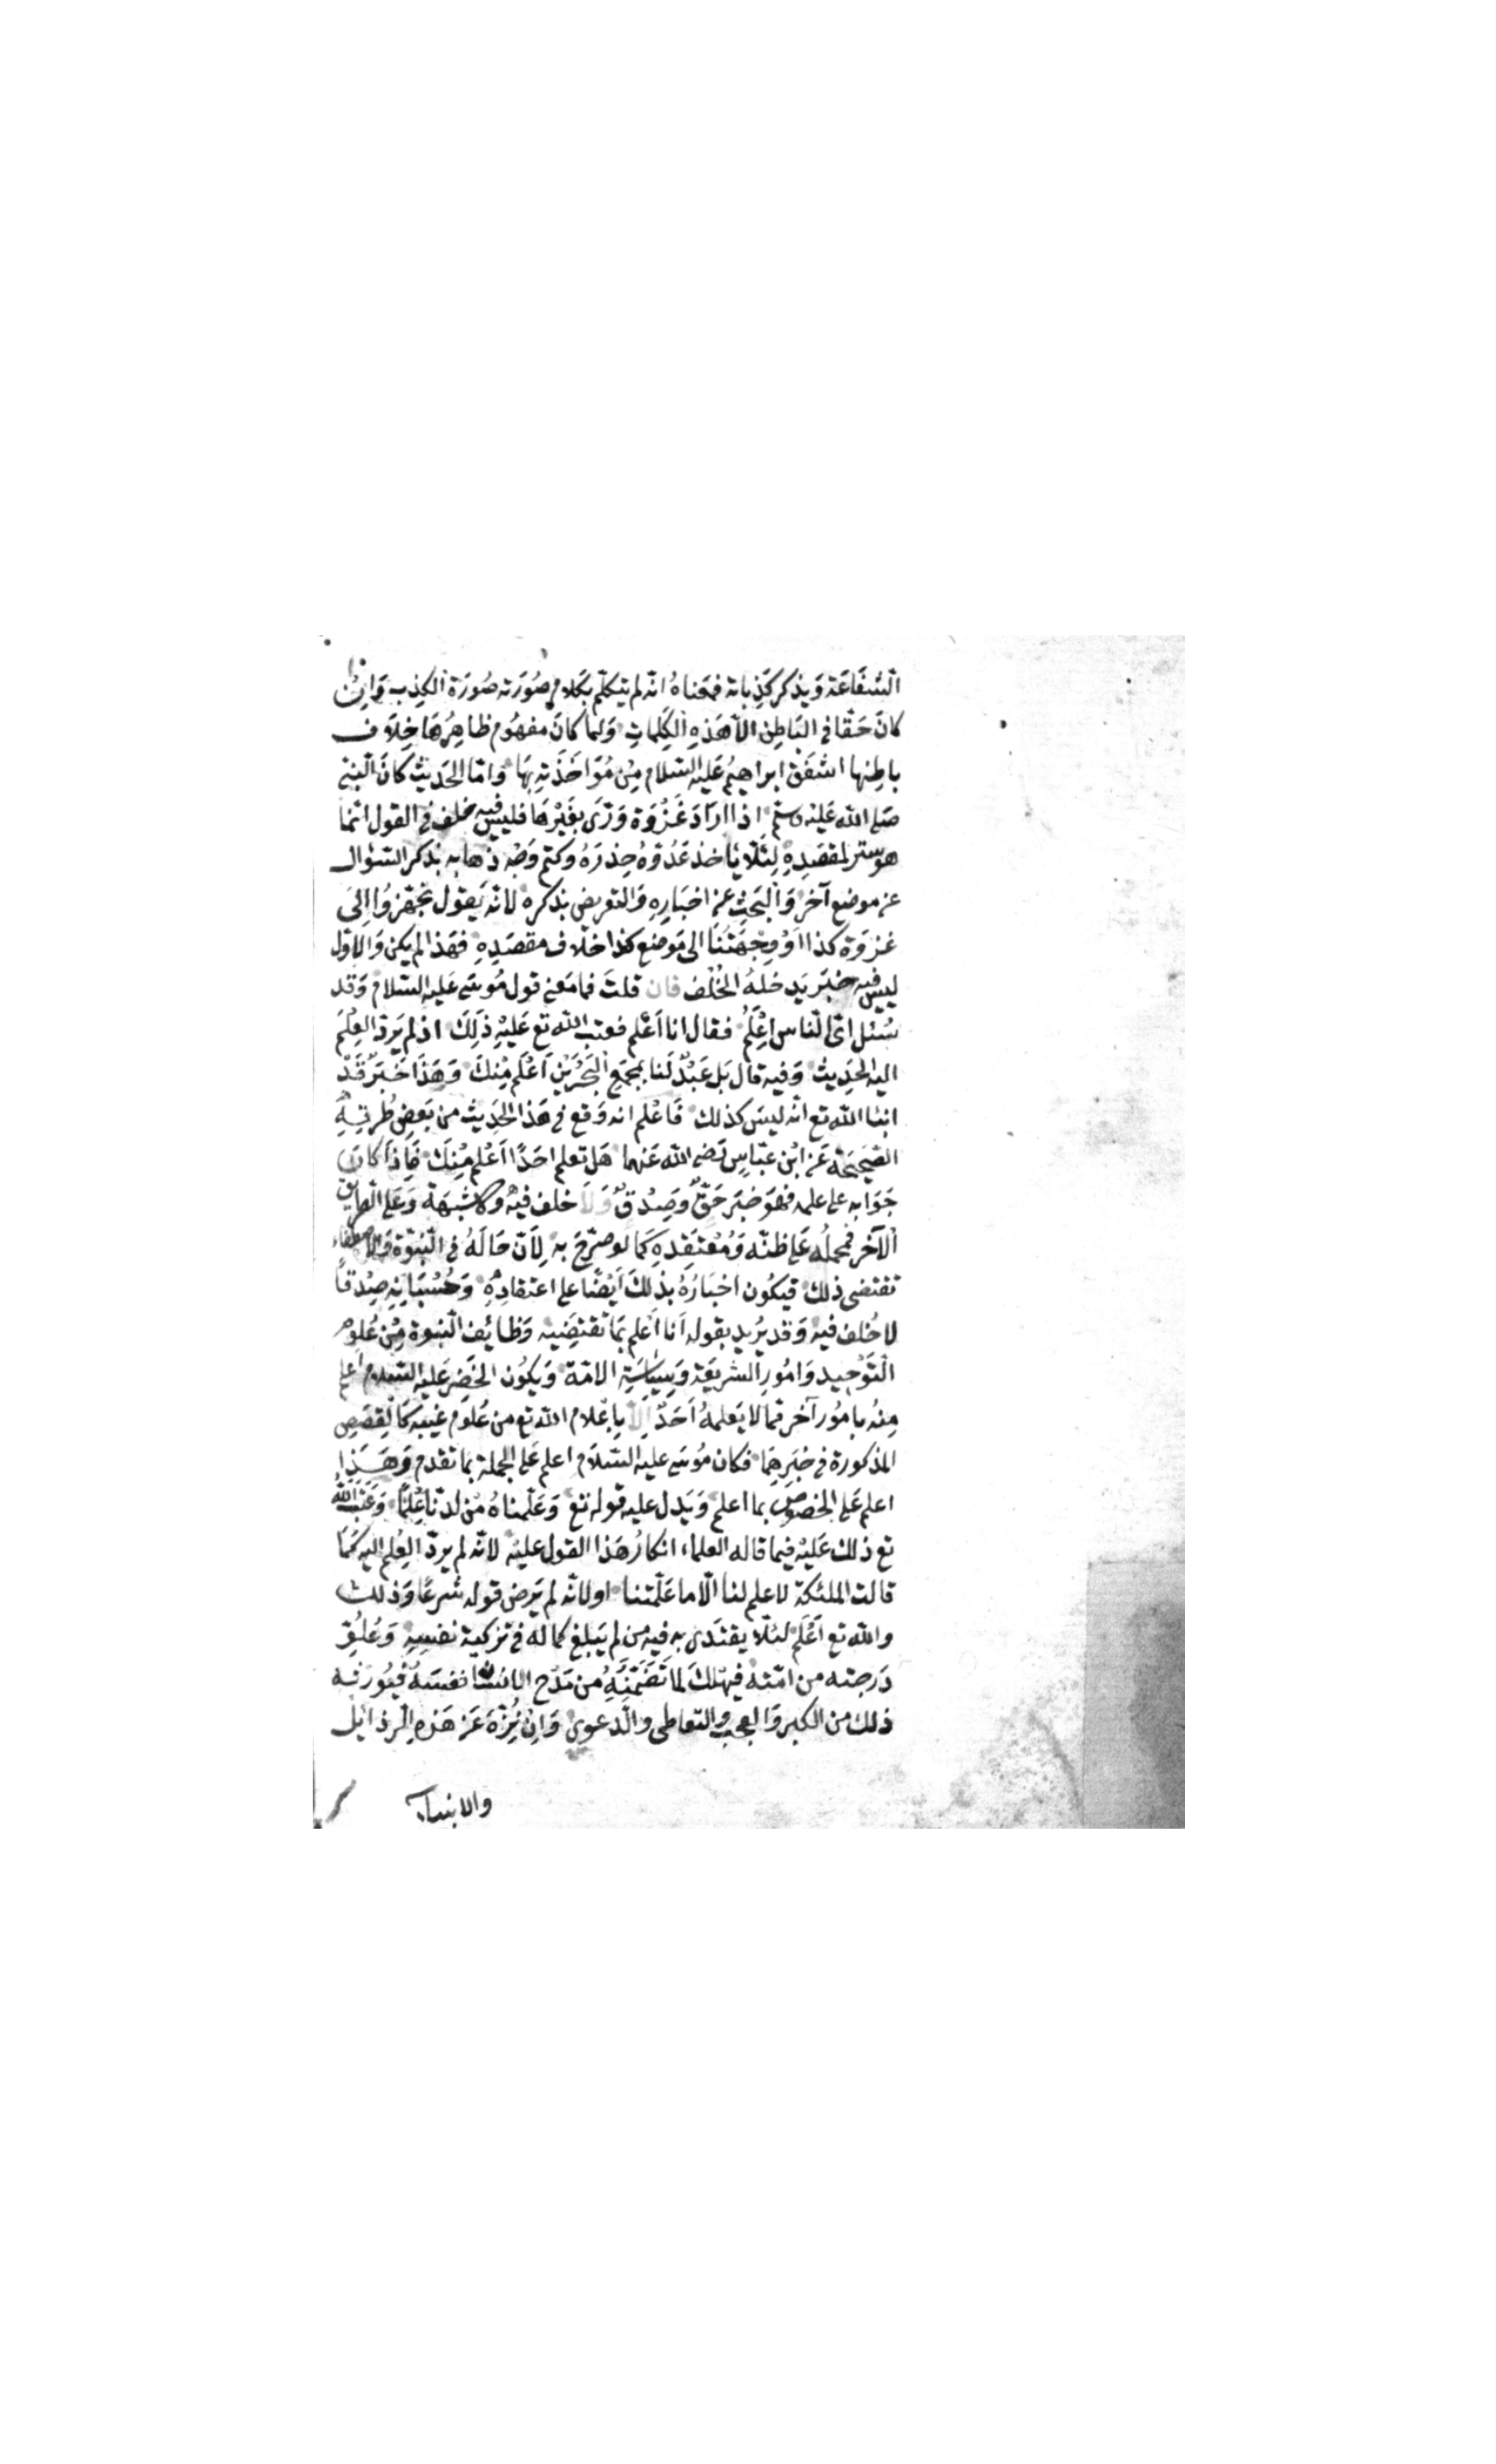 الشفاعة ويذكر كذباته فمعناه انه لم يتكلم بكلام صورته صورة الكذب وان
كان حقا في الباطن الا هذه الكلمات ولما كان مفهوم ظاهرها خلاف
باطنها اشفق ابراهيم عليه السلام من مؤاخذته بها واما الحديث كان النبي
صلى الله عليه وسلم اذا اراد غزوة ورى بغيرها فليس فيه خلف في القول انما
هو ستر لمقصده لئلا ياخذ عدوه حذره وكتم وجه ذهابه بذكر السؤال
عن موضع آخر والبحث عن اخباره والتعريض بذكره لانه يقول تجهزوا الى
غزوة كذا او وجهتنا الى موضع كذا خلاف مقصده فهذا لم يكن والاول
ليس فيه خبر يدخله الخلف فان قلت فما معنى قول موسى عليه السلام وقد
سئل اي الناس اعلم فقال انا اعلم فعتب الله تع عليه ذلك اذ لم يرد العلم
اليه الحديث وفيه قال بل عبد لنا بمجمع البحرين اعلم منك وهذا خبر قد
انبئا الله تع انه ليس كذلك فاعلم انه وقع في هذا الحديث من بعض طرقه
الصحيحة عن ابن عباس رضي الله عنهما هل تعلم احدا اعلم منك فاذا كان
جوابه على علمه فهو خبر حق وصدق ولا خلف فيه ولا شبهة وعلى الطريق
الآخر فمحمله على ظنه ومعتقده كما لو صرح به لان حاله في النبوة والاصطفاء
تقتضى ذلك فيكون اخباره بذلك ايضا على اعتقاده وحسبانه صدقا
لا خلف فيه وقد يريد بقوله انا اعلم بما تقتضيه وظائف النبوة من علوم
التوحيد وامور الشريعة وسياسة الامة ويكون الخضر عليه السلام اعلم
منه بامور آخر مما لا يعلمه احد الا باعلام الله تع من علوم غيبه كالقصص
المذكورة في خبرهما فكان موسى عليه السلام اعلم على الجملة بما تقدم وهذا
اعلم على الخصوص بما اعلم ويدل عليه قوله تع وعلمناه من لدنا علما وعتب الله
تع ذلك عليه فيما قاله العلماء انكار هذا القول عليه لانه لم يرد العلم اليه كما
قالت الملئكة لا علم لنا الا ما علمتنا او لانه لم يرض قوله شرعا وذلك
والله تع اعلم لئلا يقتدى به فيه من لم يبلغ كماله في تزكية نفسه وعلو
درجته من امته فيهلك لما تضمنه من مدح الانسان نفسه فيورثه
ذلك من الكبر والعجب والتعاطى والدعوى وان نزه عن هذه الرذائل
والانبياء